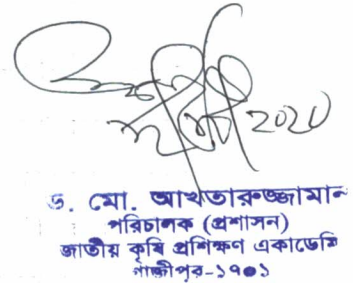 ২০২০
ড. মো. আখতারুজ্জামান
পরিচালক (প্রশাসন)
জাতীয় কৃষি প্রশিক্ষণ একাডেমি
গাজীপুর-১৭০১